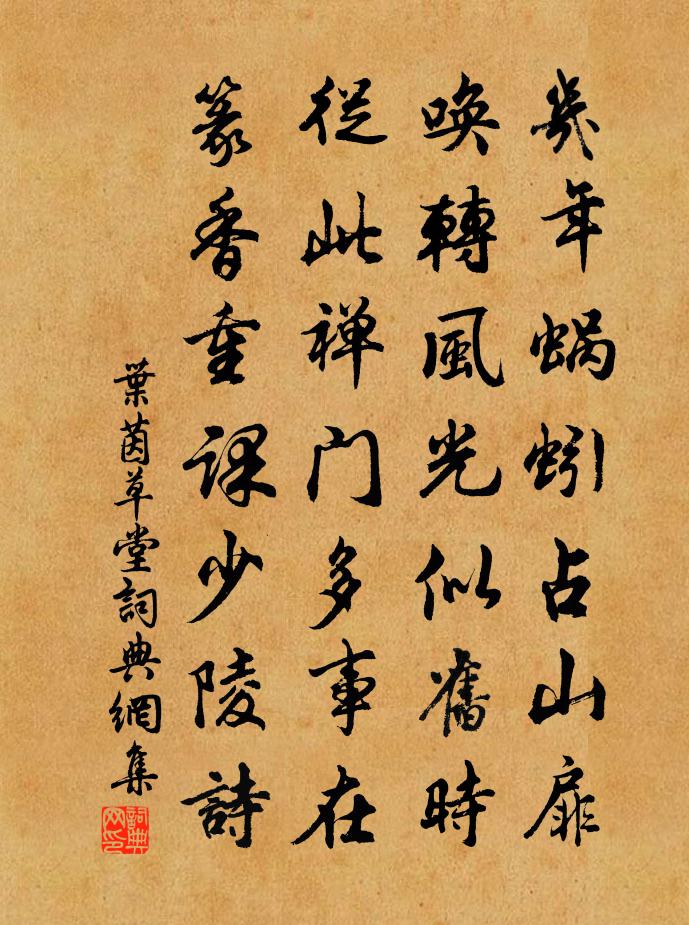 幾年蝸蚓占山扉
喚轉風光似舊時
從此禅门多事在
篆香重課少陵詩
葉茵草堂詞典網集
詞典网印